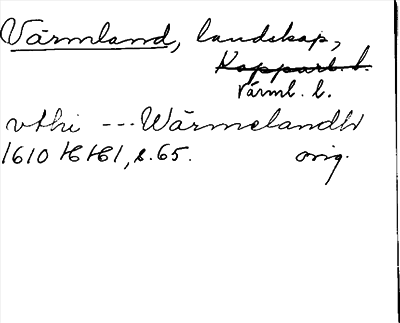 Värmland, landskap,
Kopparb. l.
Värml. l.
vthi --- Wärmelandh
1610 HH1, s. 65. orig.